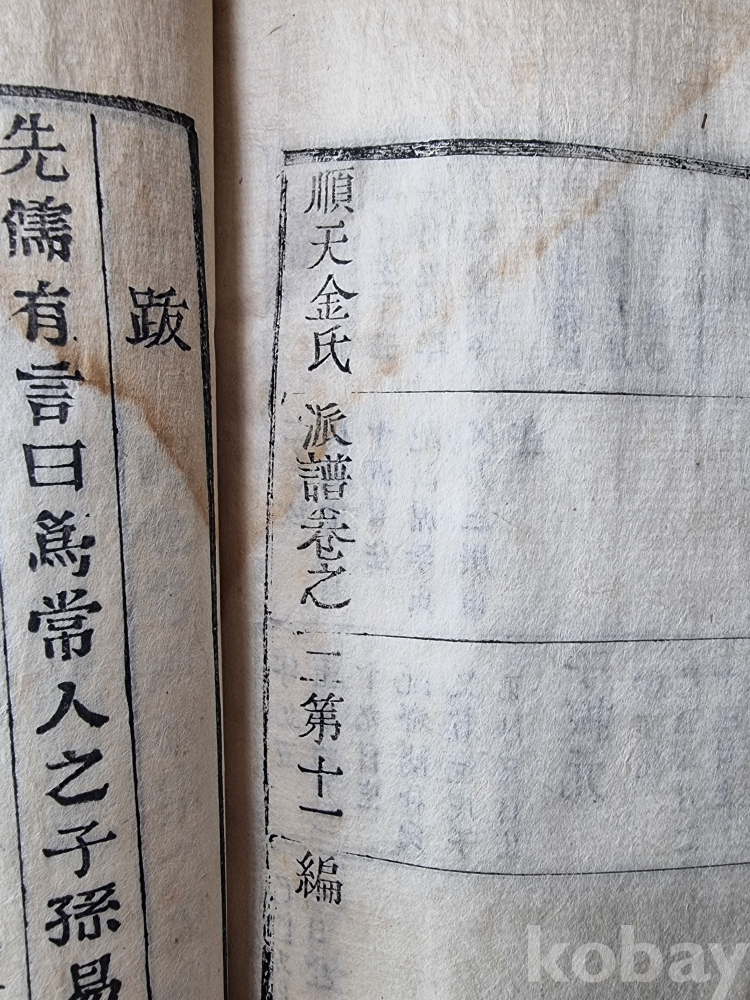 順天金氏派譜卷之二第十一編
跋
先儒有言曰為常人之子孫易
kobay